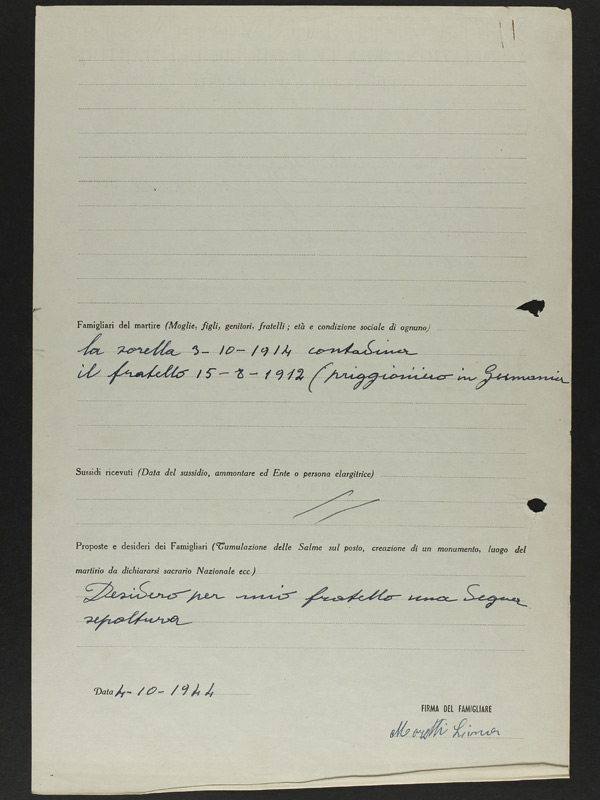 Famigliari del martire (Moglie, figli, genitori, fratelli; età e condizione sociale di ognuno)
la sorella 3-10-1914 contadina
il fratello 15-8-1912 (priggioniero in Germania
Sussidi ricevuti (Data del sussidio, ammontare ed Ente o persona elargitrice)
Proposte e desideri dei Famigliari (Tumulazione delle Salme sul posto, creazione di un monumento, luogo del
martirio da dichiararsi sacrario Nazionale ecc.)
Desidero per mio fratello una degna
sepoltura
Data 4-10-1944
FIRMA DEL FAMIGLIARE
Moretti